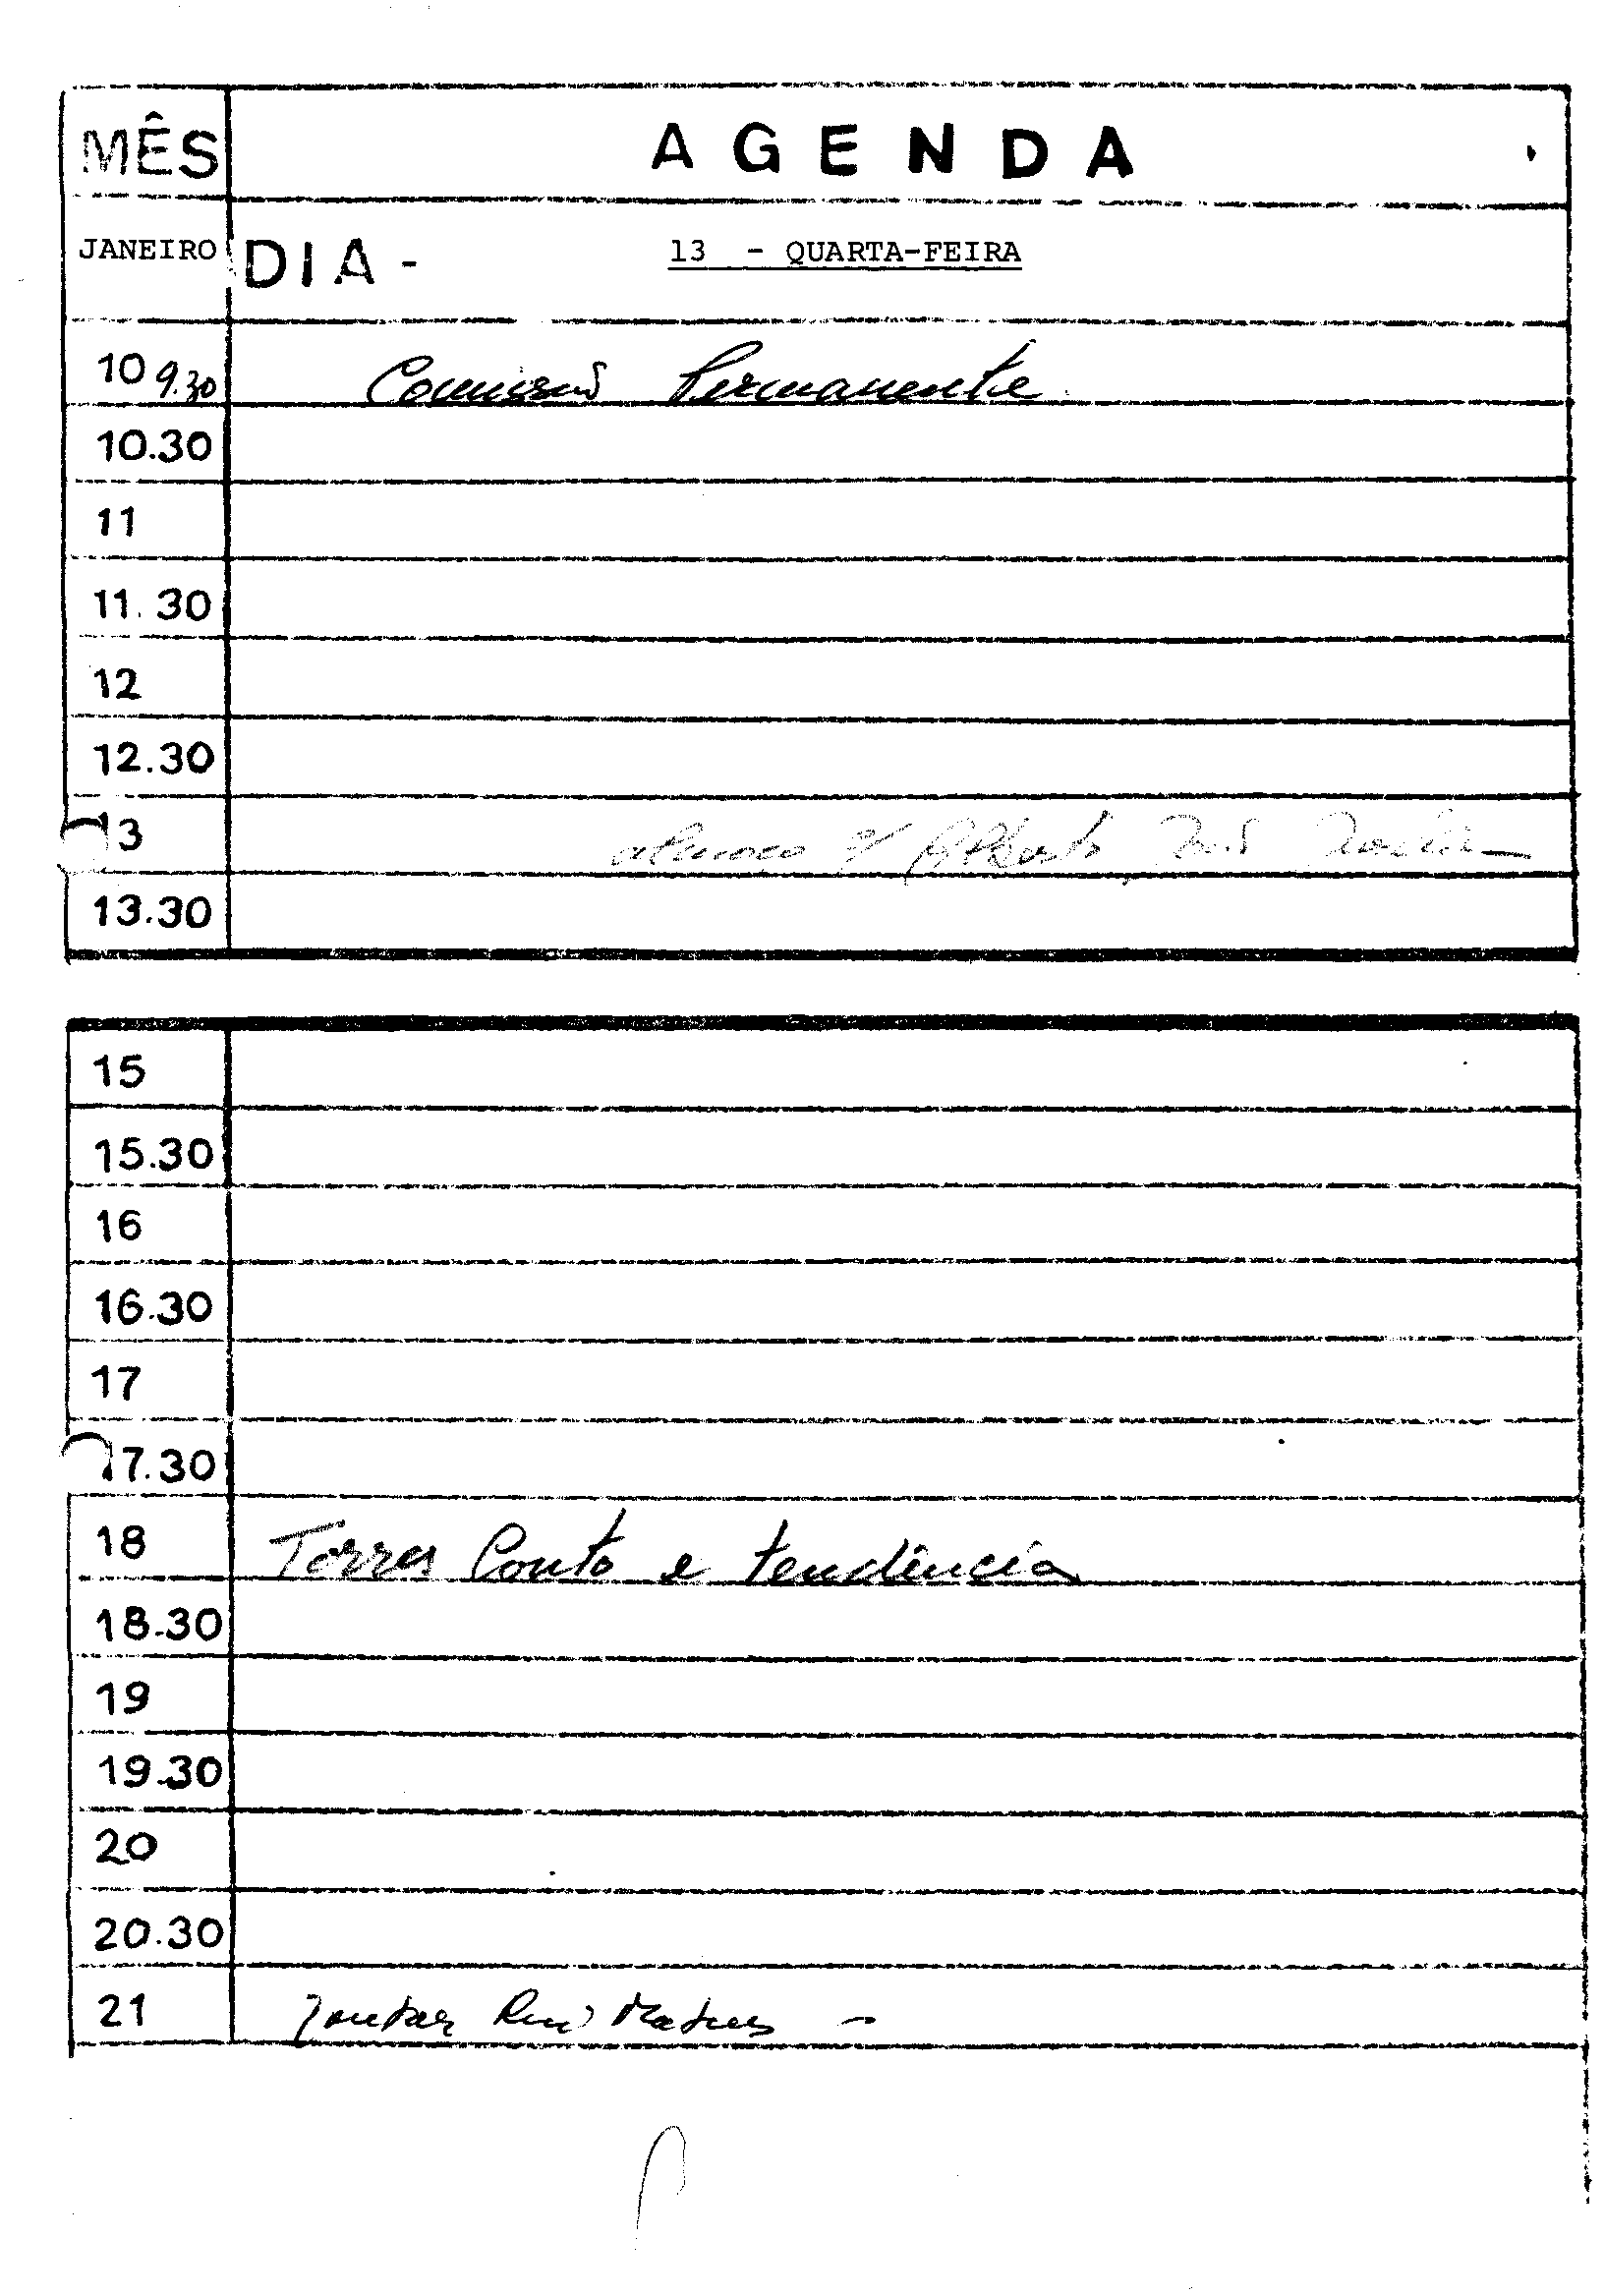 MÊS AGENDA
JANEIRO DIA - 13 - QUARTA-FEIRA
10 9.30 Comissão Permanente
10.30
11
11.30
12
12.30
13 almoço c/ Alberto
13.30
15
15.30
16
16.30
17
17.30
18 Torres Couto e tendência
18.30
19
19.30
20
20.30
21 Jantar Rui Mateus -